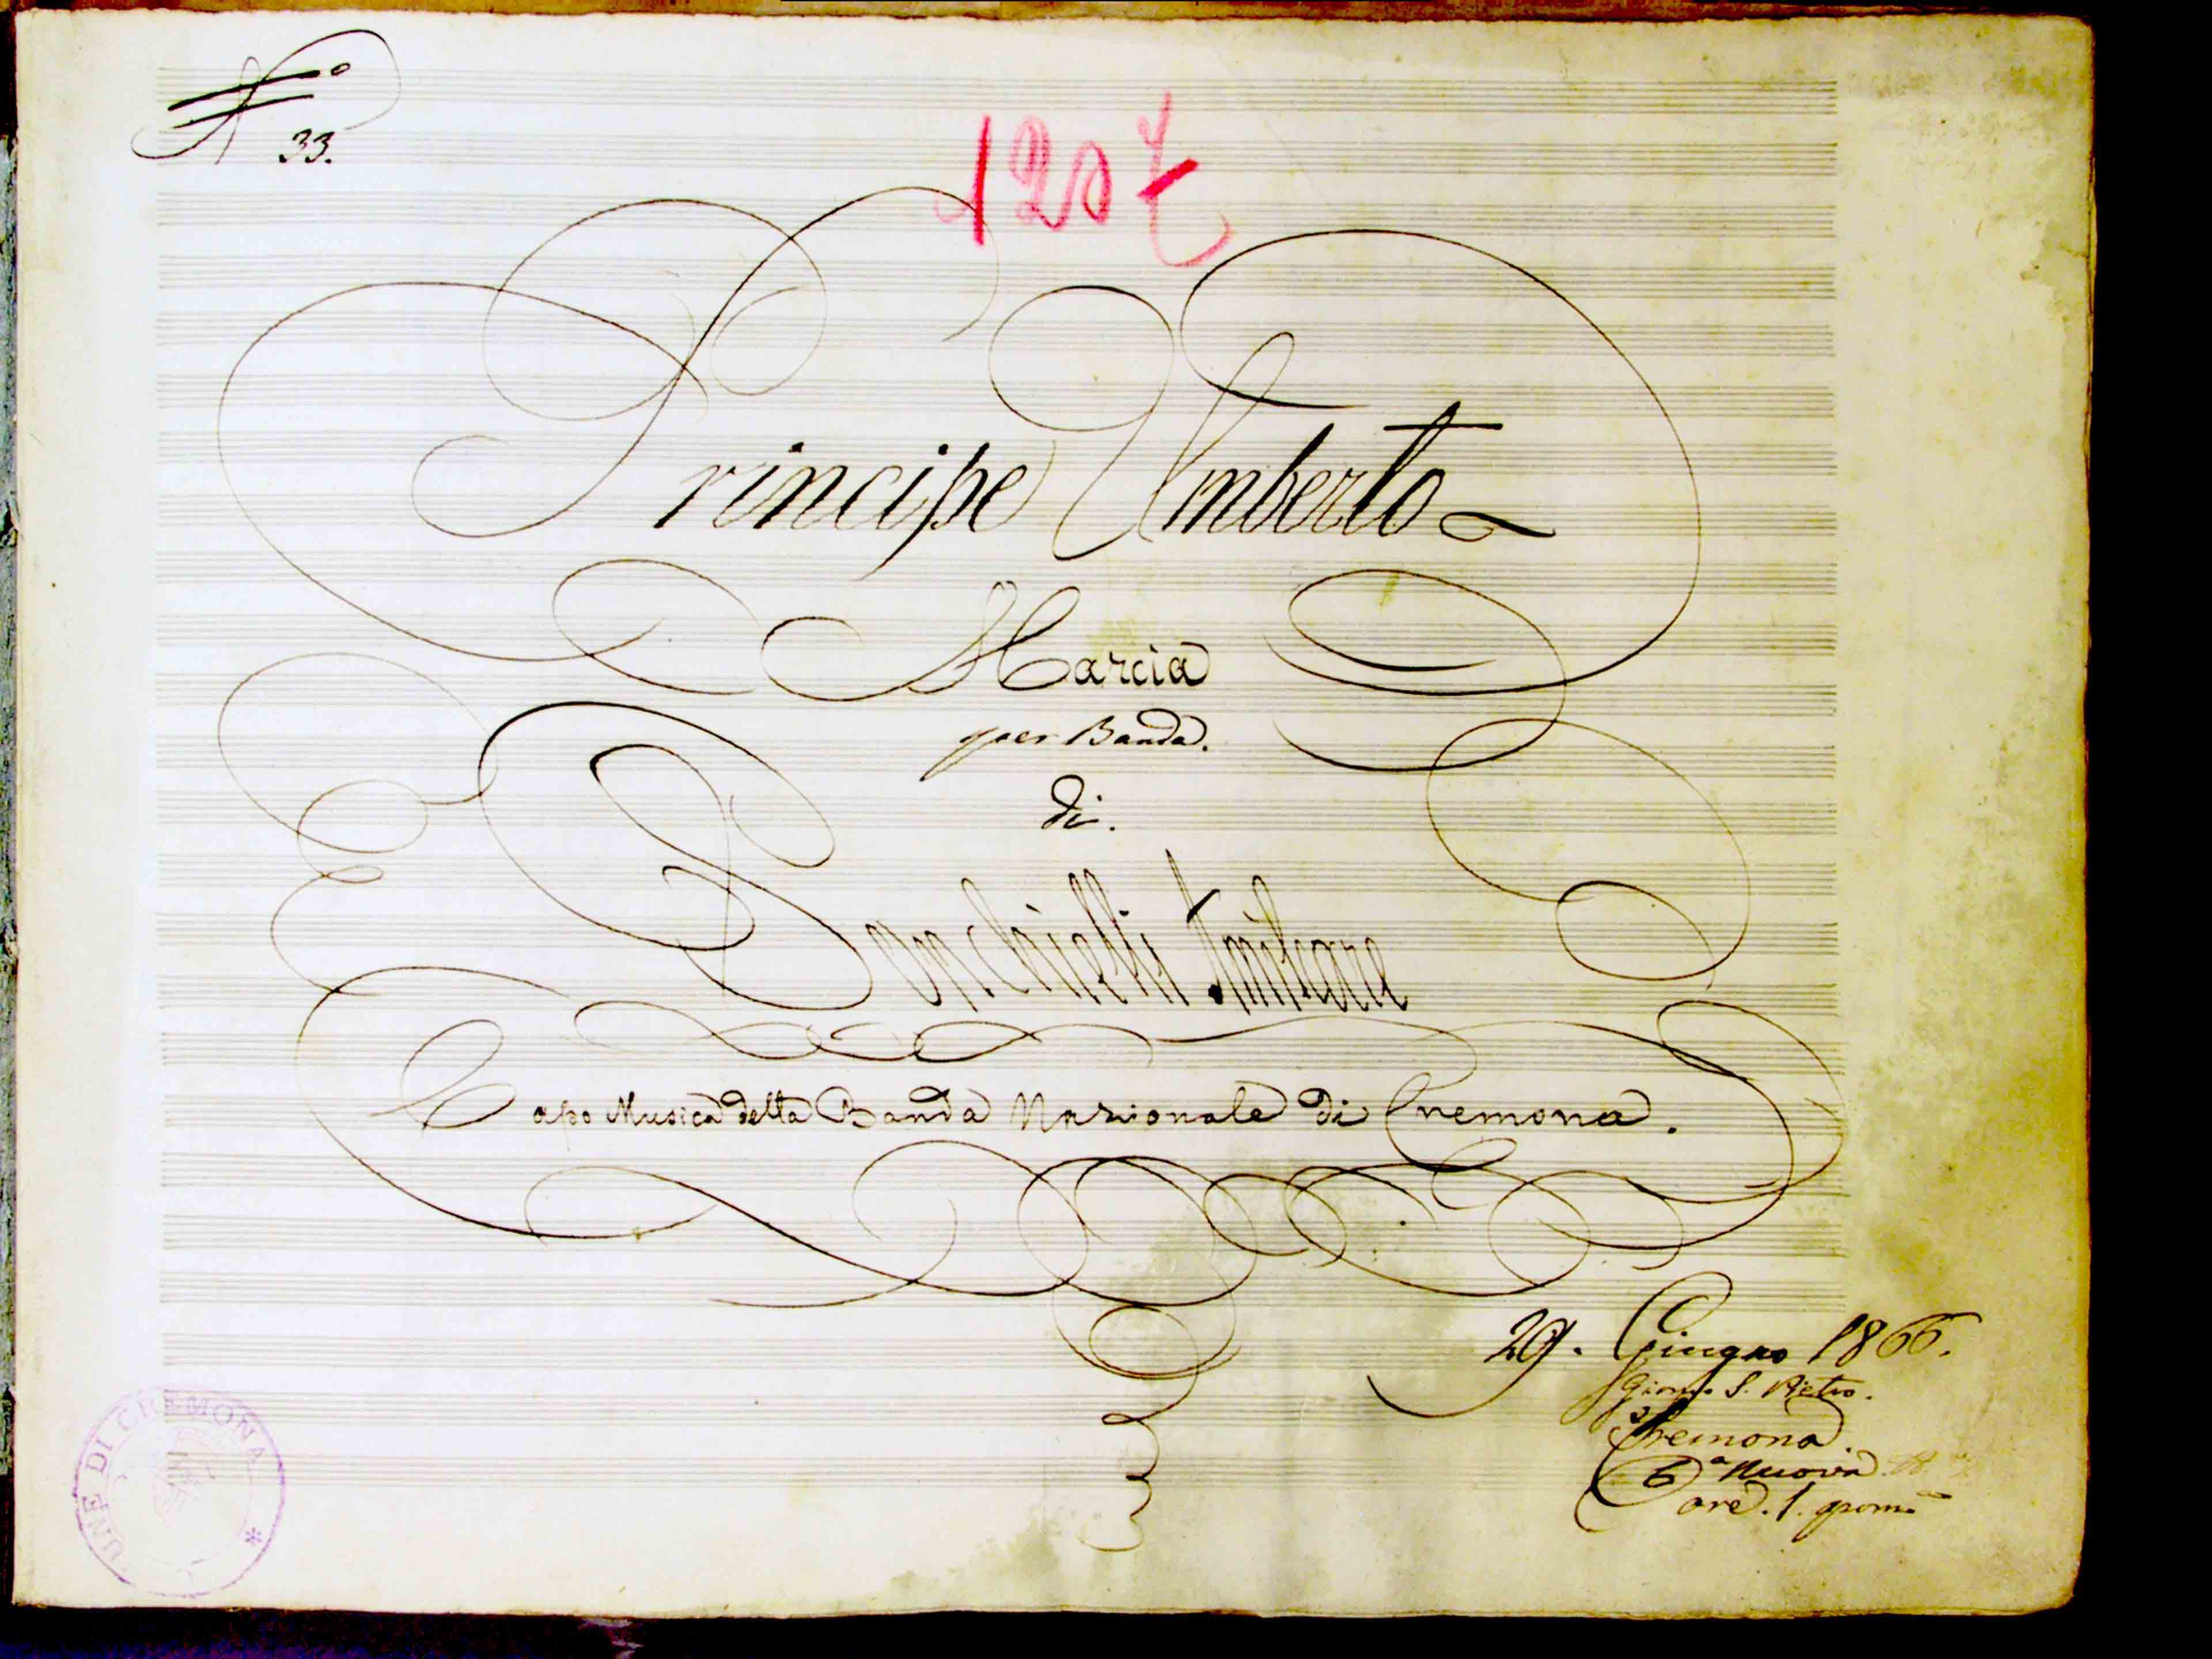 N.º
33.
1207
Principe Umberto
Marcia
per Banda.
di.
Ponchielli Amilcare
Capo Musica della Banda Nazionale di Cremona.
29. Giugno 1866.
Giorno S. Pietro.
Cremona.
Nuova
ore. 1. pom.
UNE DI CREMONA *